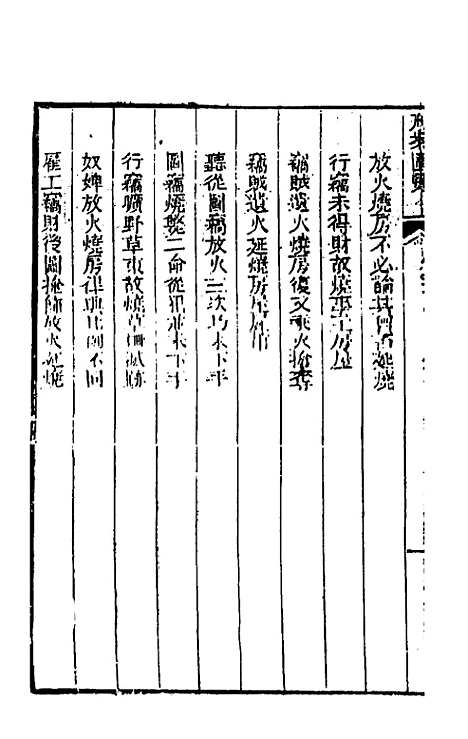 放火燒房不必論其曾否延燒
行竊未得財故燒事主房屋
竊賊遺火燒房復又乘火搶奪
竊賊遺火延燒房屋
聽從圖竊放火三次均未下手
圖竊燒斃二命從犯並未下手
行竊曠野草束故燒草滅跡
奴婢放火燒房律典比例不同
雇工竊財後圖掩飾放火延燒